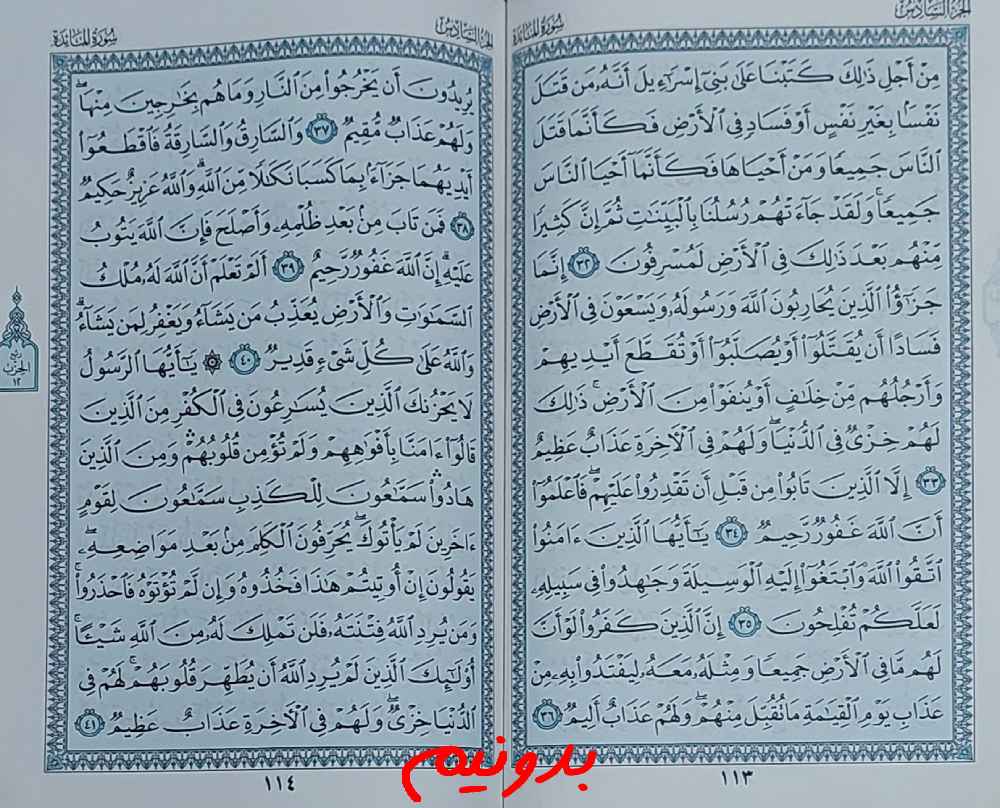 الجزء السادس
سورة المائدة
مِنْ أَجْلِ ذَٰلِكَ كَتَبْنَا عَلَىٰ بَنِىٓ إِسْرَٰٓءِيلَ أَنَّهُۥ مَن قَتَلَ
نَفْسًۢا بِغَيْرِ نَفْسٍ أَوْ فَسَادٍ فِى ٱلْأَرْضِ فَكَأَنَّمَا قَتَلَ
ٱلنَّاسَ جَمِيعًا وَمَنْ أَحْيَاهَا فَكَأَنَّمَآ أَحْيَا ٱلنَّاسَ
جَمِيعًا ۚ وَلَقَدْ جَآءَتْهُمْ رُسُلُنَا بِٱلْبَيِّنَٰتِ ثُمَّ إِنَّ كَثِيرًا
مِّنْهُم بَعْدَ ذَٰلِكَ فِى ٱلْأَرْضِ لَمُسْرِفُونَ ٣٢ إِنَّمَا
جَزَٰٓؤُا۟ ٱلَّذِينَ يُحَارِبُونَ ٱللَّهَ وَرَسُولَهُۥ وَيَسْعَوْنَ فِى ٱلْأَرْضِ
فَسَادًا أَن يُقَتَّلُوٓا۟ أَوْ يُصَلَّبُوٓا۟ أَوْ تُقَطَّعَ أَيْدِيهِمْ
وَأَرْجُلُهُم مِّنْ خِلَٰفٍ أَوْ يُنفَوْا۟ مِنَ ٱلْأَرْضِ ۚ ذَٰلِكَ
لَهُمْ خِزْىٌ فِى ٱلدُّنْيَا ۖ وَلَهُمْ فِى ٱلْءَاخِرَةِ عَذَابٌ عَظِيمٌ
٣٣ إِلَّا ٱلَّذِينَ تَابُوا۟ مِن قَبْلِ أَن تَقْدِرُوا۟ عَلَيْهِمْ ۖ فَٱعْلَمُوٓا۟
أَنَّ ٱللَّهَ غَفُورٌ رَّحِيمٌ ٣٤ يَٰٓأَيُّهَا ٱلَّذِينَ ءَامَنُوا۟
ٱتَّقُوا۟ ٱللَّهَ وَٱبْتَغُوٓا۟ إِلَيْهِ ٱلْوَسِيلَةَ وَجَٰهِدُوا۟ فِى سَبِيلِهِۦ
لَعَلَّكُمْ تُفْلِحُونَ ٣٥ إِنَّ ٱلَّذِينَ كَفَرُوا۟ لَوْ أَنَّ
لَهُم مَّا فِى ٱلْأَرْضِ جَمِيعًا وَمِثْلَهُۥ مَعَهُۥ لِيَفْتَدُوا۟ بِهِۦ مِنْ
عَذَابِ يَوْمِ ٱلْقِيَٰمَةِ مَا تُقُبِّلَ مِنْهُمْ ۖ وَلَهُمْ عَذَابٌ أَلِيمٌ ٣٦
١١٣
الجزء السادس
سورة المائدة
يُرِيدُونَ أَن يَخْرُجُوا۟ مِنَ ٱلنَّارِ وَمَا هُم بِخَٰرِجِينَ مِنْهَا ۖ
وَلَهُمْ عَذَابٌ مُّقِيمٌ ٣٧ وَٱلسَّارِقُ وَٱلسَّارِقَةُ فَٱقْطَعُوٓا۟
أَيْدِيَهُمَا جَزَآءًۢ بِمَا كَسَبَا نَكَٰلًا مِّنَ ٱللَّهِ ۗ وَٱللَّهُ عَزِيزٌ حَكِيمٌ
٣٨ فَمَن تَابَ مِنۢ بَعْدِ ظُلْمِهِۦ وَأَصْلَحَ فَإِنَّ ٱللَّهَ يَتُوبُ
عَلَيْهِ ۗ إِنَّ ٱللَّهَ غَفُورٌ رَّحِيمٌ ٣٩ أَلَمْ تَعْلَمْ أَنَّ ٱللَّهَ لَهُۥ مُلْكُ
ٱلسَّمَٰوَٰتِ وَٱلْأَرْضِ يُعَذِّبُ مَن يَشَآءُ وَيَغْفِرُ لِمَن يَشَآءُ ۗ
وَٱللَّهُ عَلَىٰ كُلِّ شَىْءٍ قَدِيرٌ ٤٠ ۞ يَٰٓأَيُّهَا ٱلرَّسُولُ
لَا يَحْزُنكَ ٱلَّذِينَ يُسَٰرِعُونَ فِى ٱلْكُفْرِ مِنَ ٱلَّذِينَ
قَالُوٓا۟ ءَامَنَّا بِأَفْوَٰهِهِمْ وَلَمْ تُؤْمِن قُلُوبُهُمْ ۛ وَمِنَ ٱلَّذِينَ
هَادُوا۟ ۛ سَمَّٰعُونَ لِلْكَذِبِ سَمَّٰعُونَ لِقَوْمٍ
ءَاخَرِينَ لَمْ يَأْتُوكَ ۖ يُحَرِّفُونَ ٱلْكَلِمَ مِنۢ بَعْدِ مَوَاضِعِهِۦ ۖ
يَقُولُونَ إِنْ أُوتِيتُمْ هَٰذَا فَخُذُوهُ وَإِن لَّمْ تُؤْتَوْهُ فَٱحْذَرُوا۟ ۚ
وَمَن يُرِدِ ٱللَّهُ فِتْنَتَهُۥ فَلَن تَمْلِكَ لَهُۥ مِنَ ٱللَّهِ شَيْـًٔا ۚ
أُو۟لَٰٓئِكَ ٱلَّذِينَ لَمْ يُرِدِ ٱللَّهُ أَن يُطَهِّرَ قُلُوبَهُمْ ۚ لَهُمْ فِى
ٱلدُّنْيَا خِزْىٌ ۖ وَلَهُمْ فِى ٱلْءَاخِرَةِ عَذَابٌ عَظِيمٌ ٤١
١١٤
ربع
الحزب
١٢
بدونيم